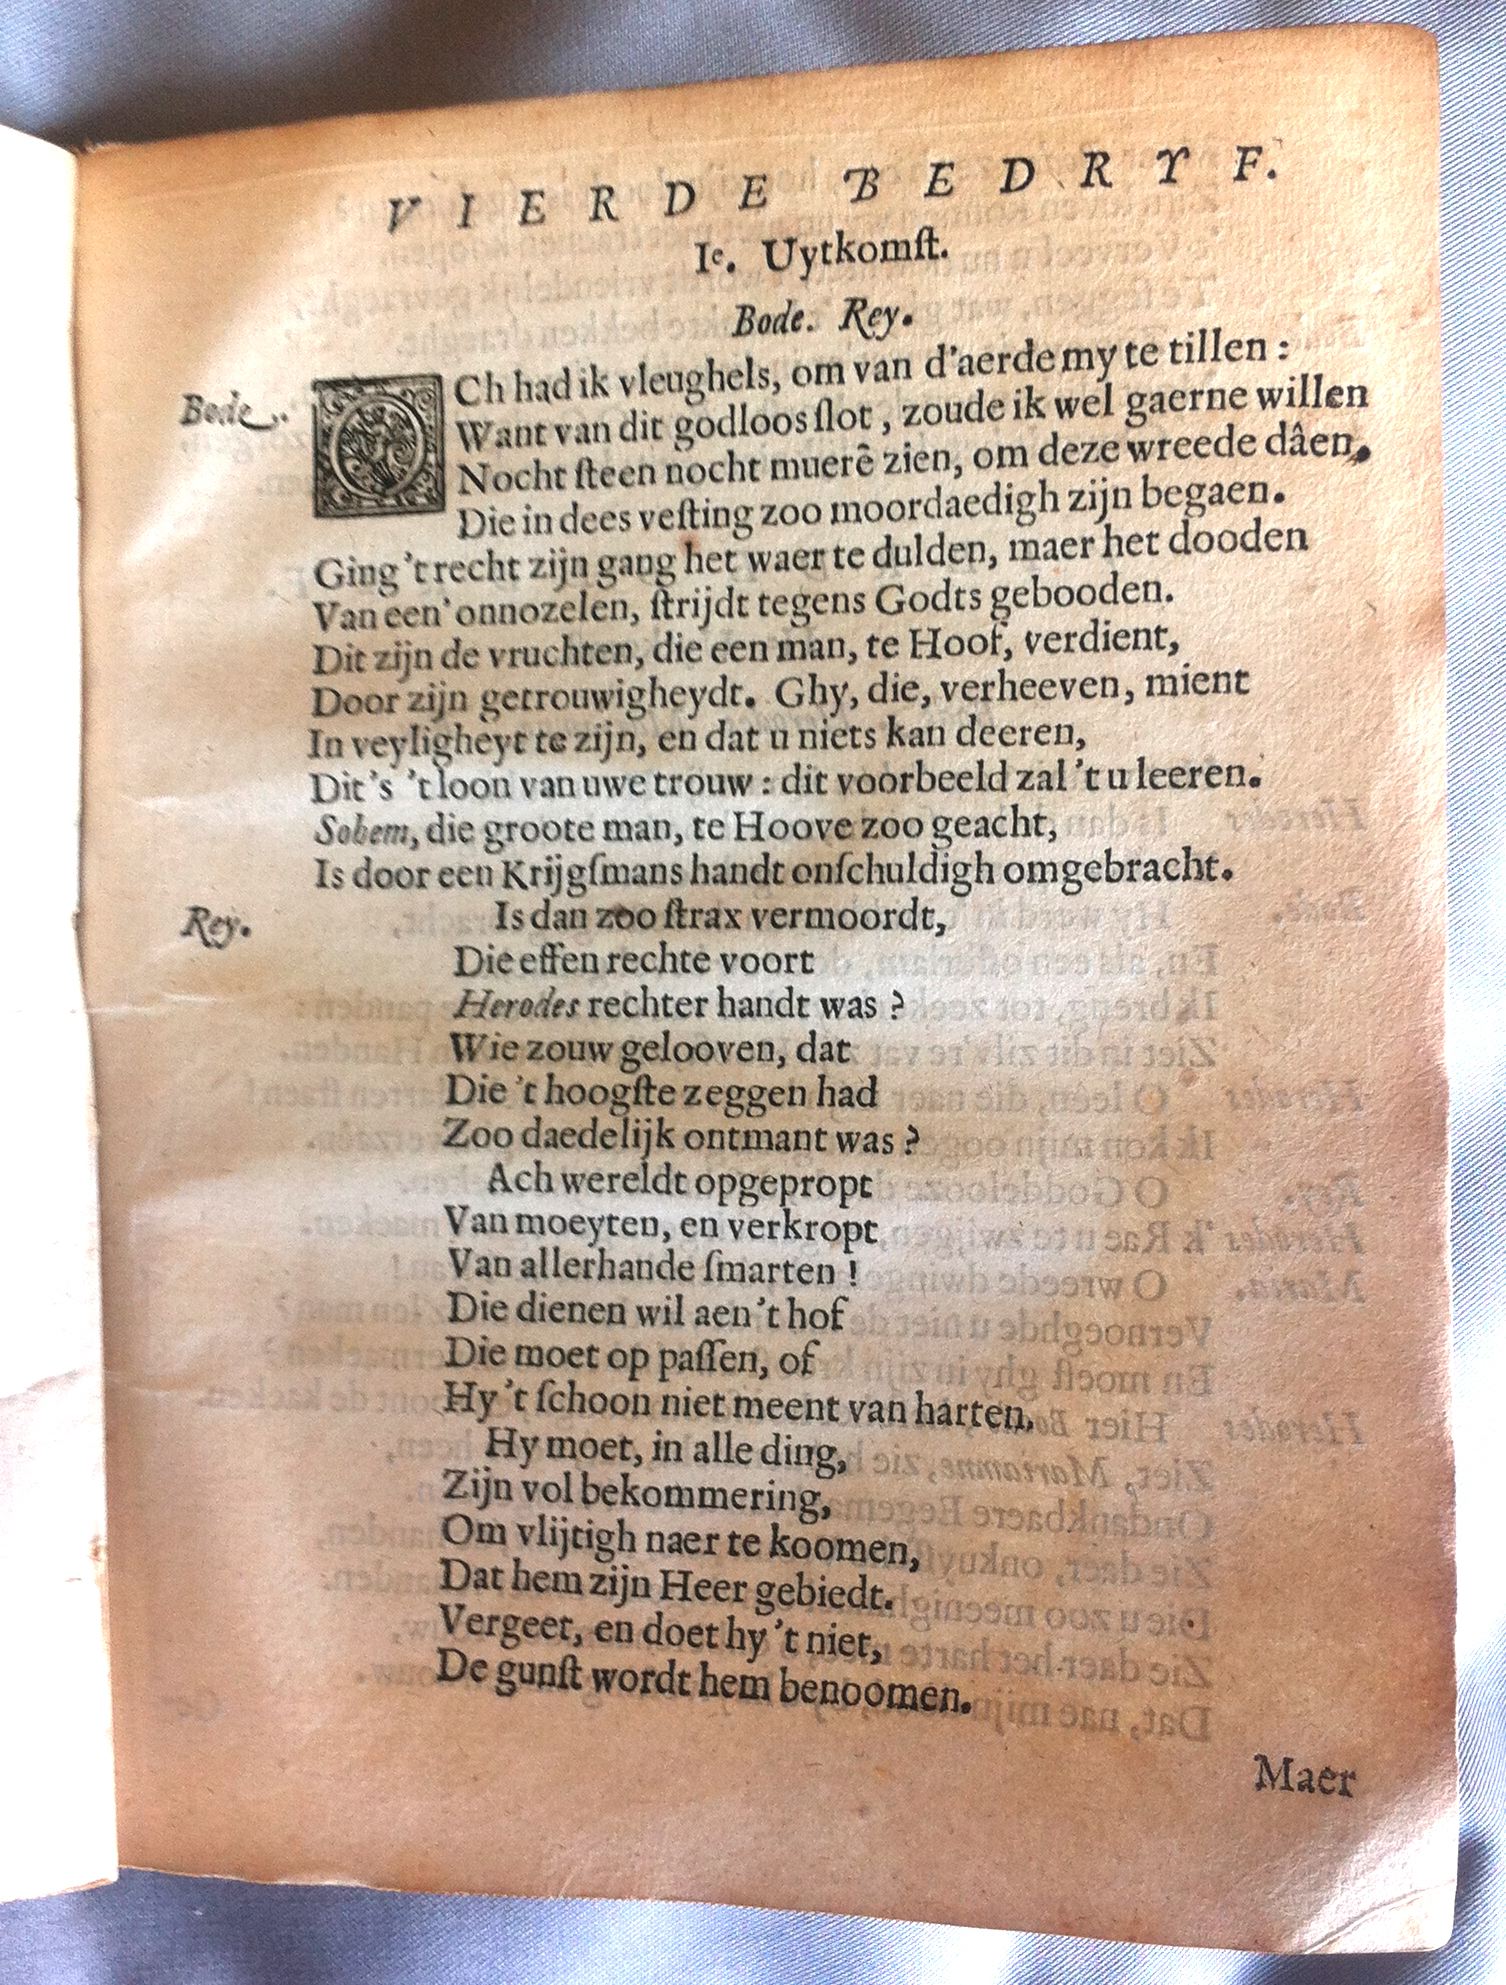 VIERDE BEDRYF.
Iᵉ. Uytkomſt.
Bode. Rey.
Bode. OCh had ik vleughels, om van d'aerde my te tillen:
Want van dit godloos ſlot, zoude ik wel gaerne willen
Nocht ſteen nocht muerê zien, om deze wreede dâen,
Die in dees veſting zoo moordaedigh zijn begaen.
Ging 't recht zijn gang het waer te dulden, maer het dooden
Van een' onnozelen, ſtrijdt tegens Godts gebooden.
Dit zijn de vruchten, die een man, te Hoof, verdient,
Door zijn getrouwigheydt. Ghy, die, verheeven, mient
In veyligheyt te zijn, en dat u niets kan deeren,
Dit 's 't loon van uwe trouw: dit voorbeeld zal 't u leeren.
Sohem, die groote man, te Hoove zoo geacht,
Is door een Krijgſmans handt onſchuldigh omgebracht.
Rey. Is dan zoo ſtrax vermoordt,
Die effen rechte voort
Herodes rechter handt was?
Wie zouw gelooven, dat
Die 't hoogſte zeggen had
Zoo daedelijk ontmant was?
Ach wereldt opgepropt
Van moeyten, en verkropt
Van allerhande ſmarten!
Die dienen wil aen 't hof
Die moet op paſſen, of
Hy 't ſchoon niet meent van harten.
Hy moet, in alle ding,
Zijn vol bekommering,
Om vlijtigh naer te koomen,
Dat hem zijn Heer gebiedt.
Vergeet, en doet hy 't niet,
De gunſt wordt hem benoomen.
Maer